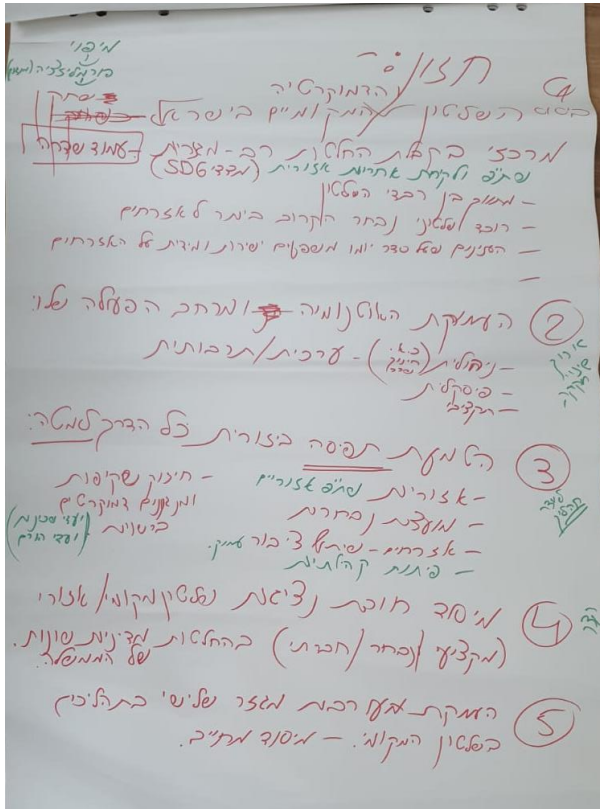 מיפוי
חזון:
הדמוקרטיה
השלטון המקומיים בישראל –
מרכזי בקבלת החלטות רב-מגזרית – עמוד שדרה
ולקחת אחריות אזורית (מדדי SDG)
– מתווך בין רבדי השלטון
– רובד שלטוני נבחר הקרוב ביותר לאזרחים
– העניינים שעל סדר יומו משפיעים ישירות ומידית על האזרחים
–
② העמקת האוטונומיה ומרחב הפעולה שלו:
– ניהולית (כ.א. – ערכית/תרבותית
– פיסקלית
– תקציבי
③ הטמעת תפיסה ביזורית כל הדרך למטה:
– אזורית אזוריים
– מועצת נבחרת
– אזרחים – שיתוף ציבור עמוק.
– קהילתית
– חיזוק שקיפות
ומנגנונים דמוקרטים
ברשויות (ועדי שכונות
ועדי הורים)
④ מיסוד חובת נציגות שלטון מקומי/אזורי
(מקצועי/נבחר/חברתי) בהחלטות מדיניות שונות
של הממשלה.
⑤ העמקת מעורבות מגזר שלישי בתהליכים
בשלטון המקומי. – מיסוד מחייב.